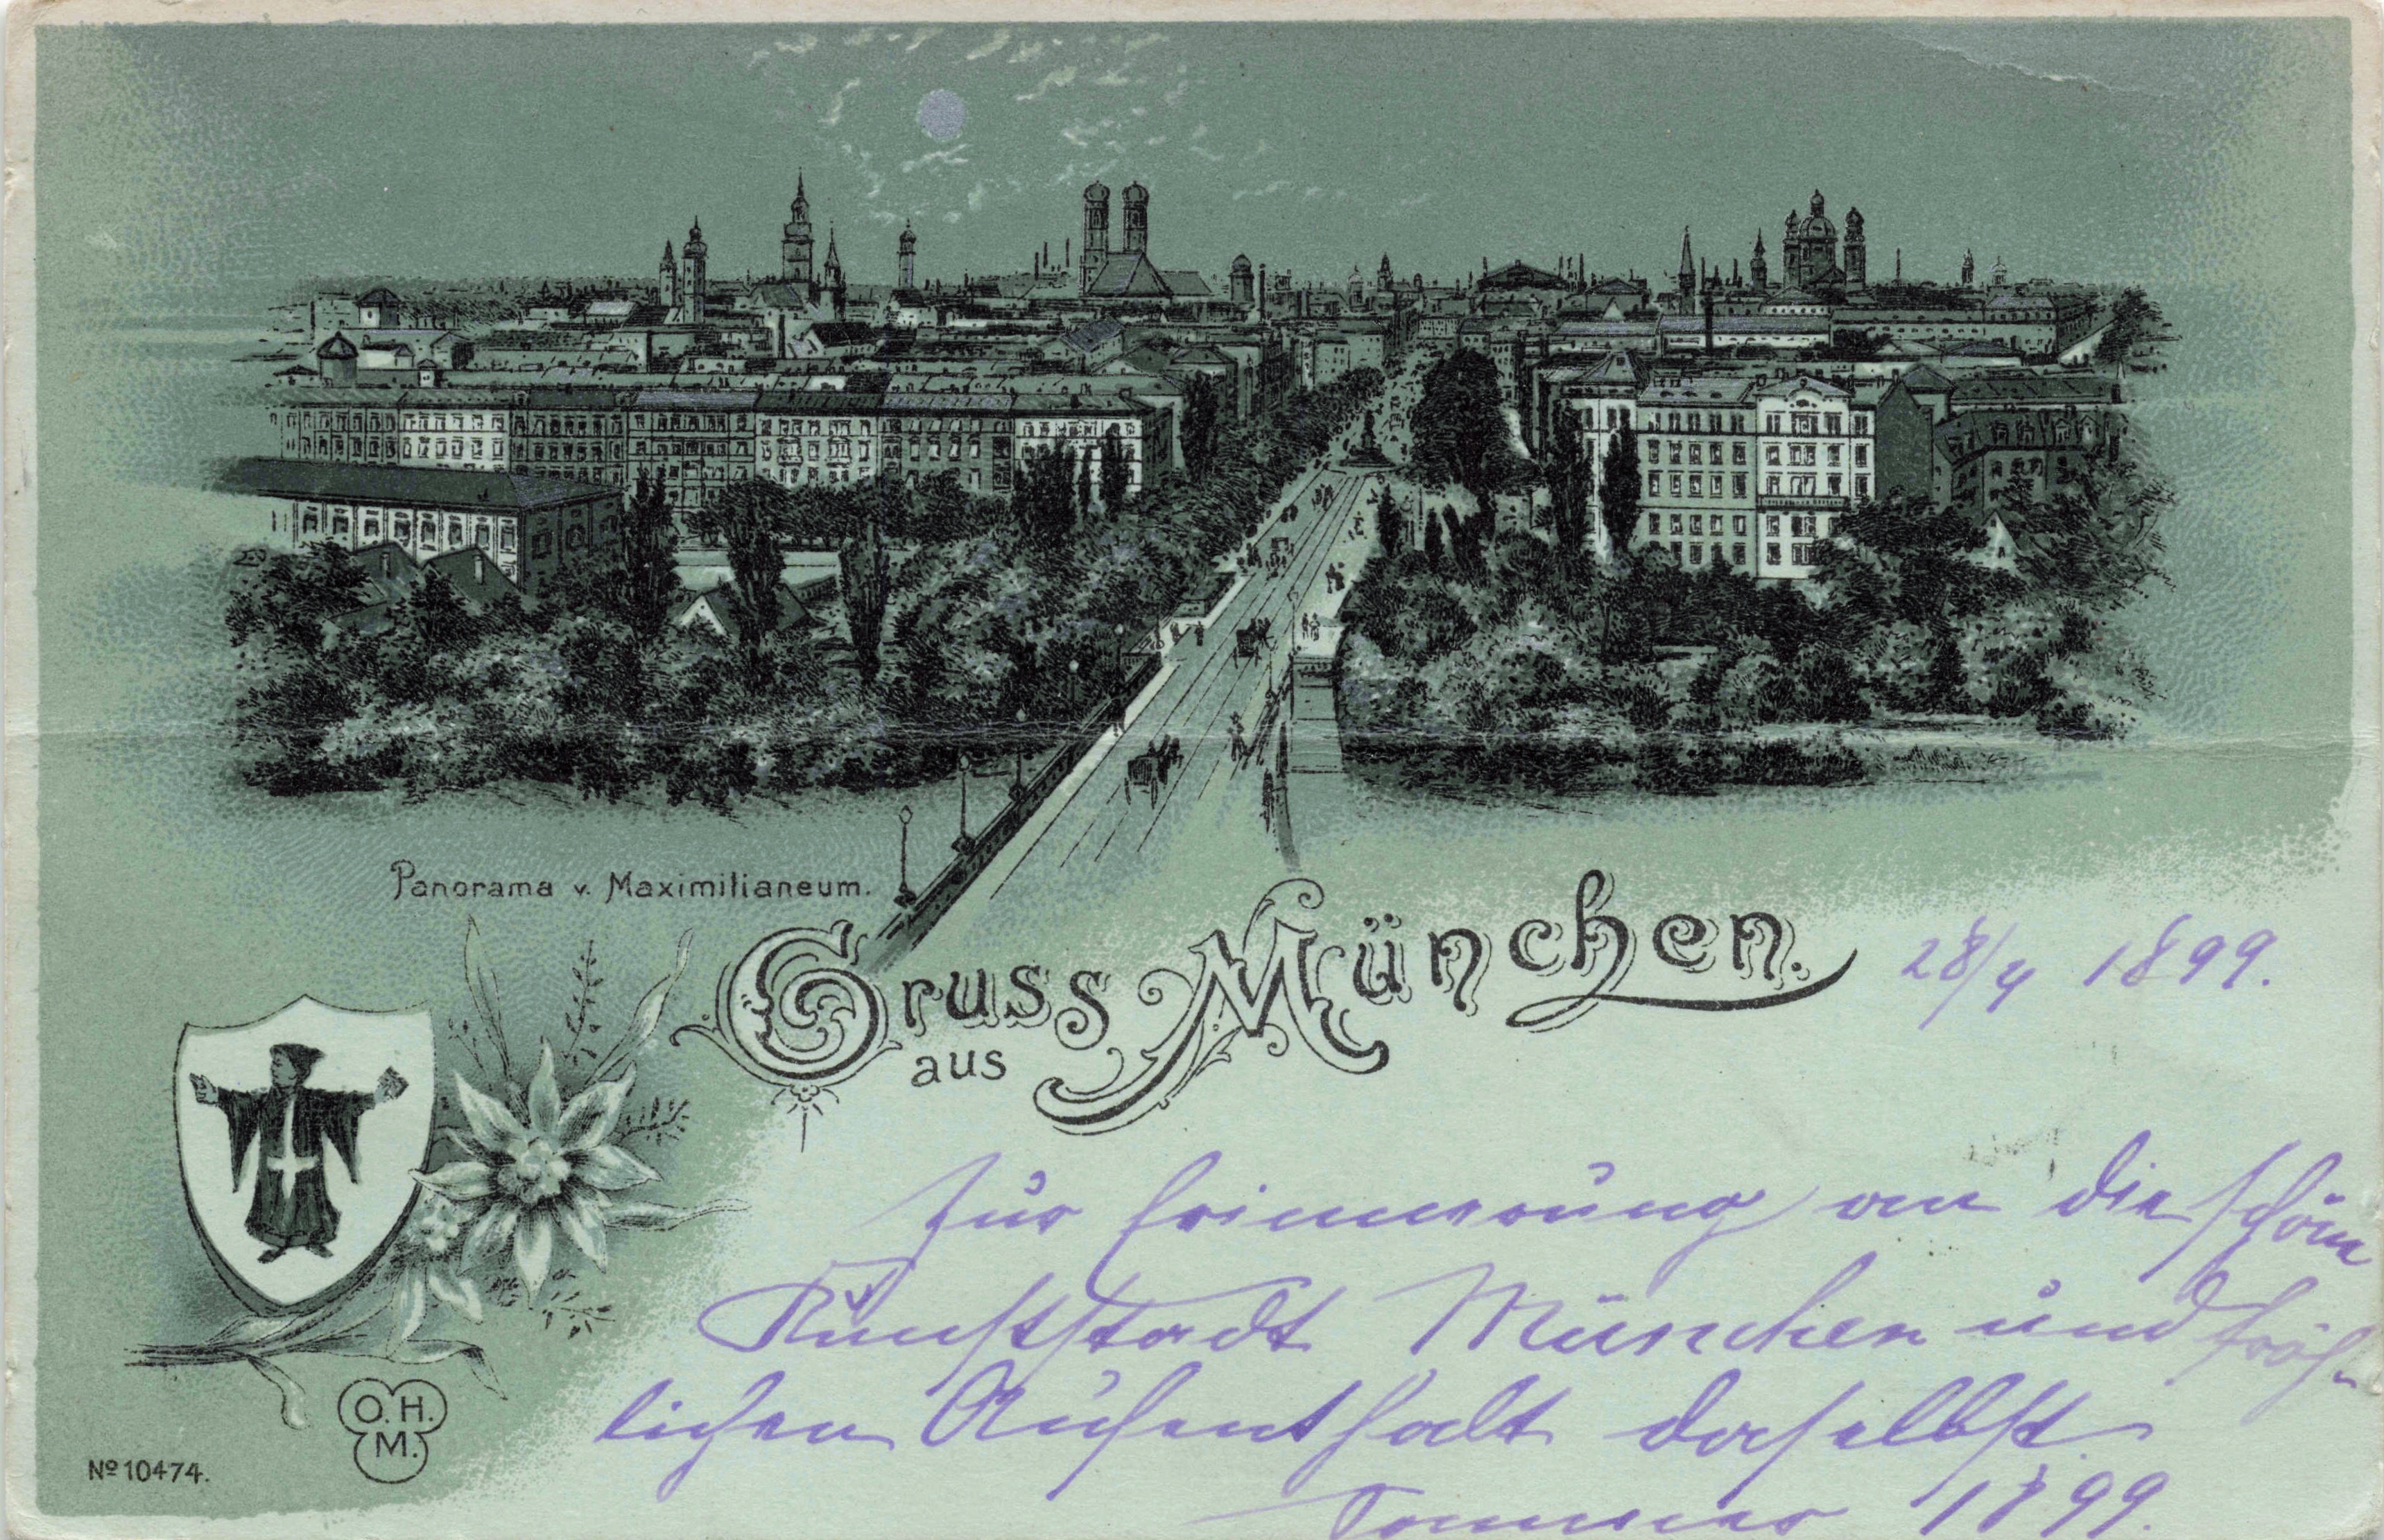 Panorama v. Maximilianeum.
Gruss aus München.
28/4 1899.
Zur Erinnerung an die schöne
Kunststadt München und fröh-
lichen Aufenthalt daselbst
Sommer 1899.
O. H.
M.
Nº 10474.